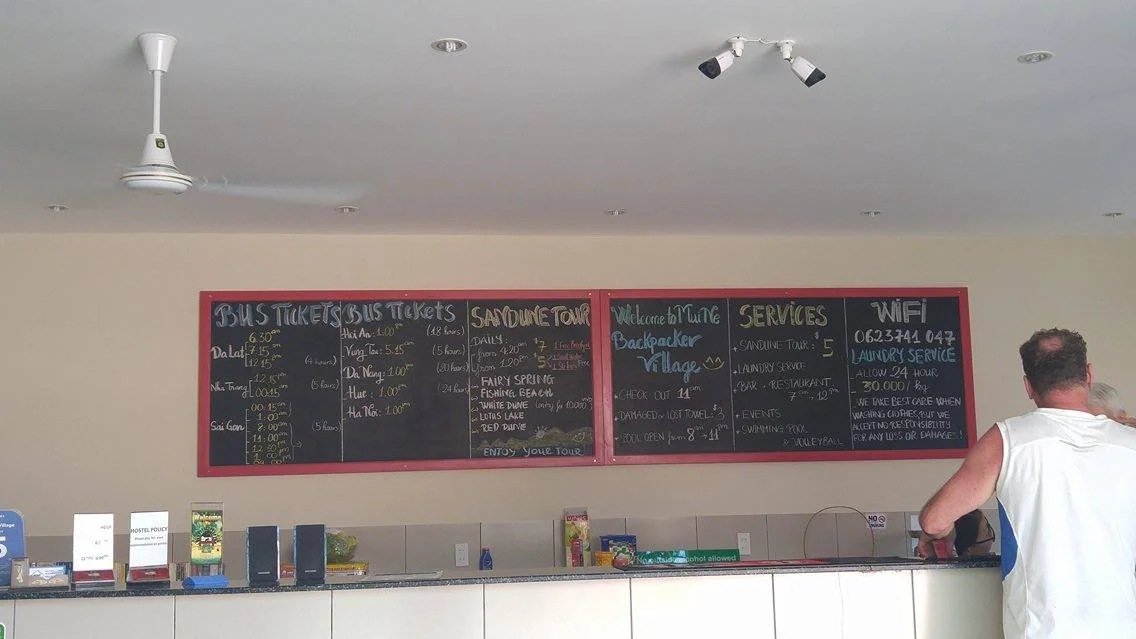 BUS TICKETS
Da Lat
6.30am
7.15am
12.15pm
(4 hours)
Nha Trang
12.15pm
00:15am
(5 hours)
Sai Gon
00:15am
1:00am
8:00am
11:00am
12.30pm
(5 hours)
BUS Tickets
Hoi An: 1:00pm (18 hours)
Vung Tau: 5.15am (5 hours)
Da Nang: 1.00pm (20 hours)
Hue: 1.00pm (24 hours)
Ha Noi: 1.00pm
SANDUNE TOUR
DAILY:
from 4:20am $7
from 1:20pm $5
FAIRY SPRING
FISHING BEACH
WHITE DUNE
LOTUS LAKE
RED DUNE
ENJOY YOUR TOUR
Welcome to Mui Ne
Backpacker
Village
CHECK OUT 11am
DAMAGED or LOST TOWEL: $3
POOL OPEN from 8am → 11pm
SERVICES
SANDUNE TOUR: $5
LAUNDRY SERVICE
BAR + RESTAURANT
7am - 12pm
EVENTS
SWIMMING POOL
& VOLLEYBALL
WiFi
0623741 047
LAUNDRY SERVICE
ALLOW 24 HOUR
30.000 / kg
WE TAKE BEST CARE WHEN
WASHING CLOTHES, BUT WE
ACCEPT NO RESPONSIBILITY
FOR ANY LOSS OR DAMAGES!
HOSTEL POLICY
Welcome
NO
SMOKING
No outside alcohol allowed